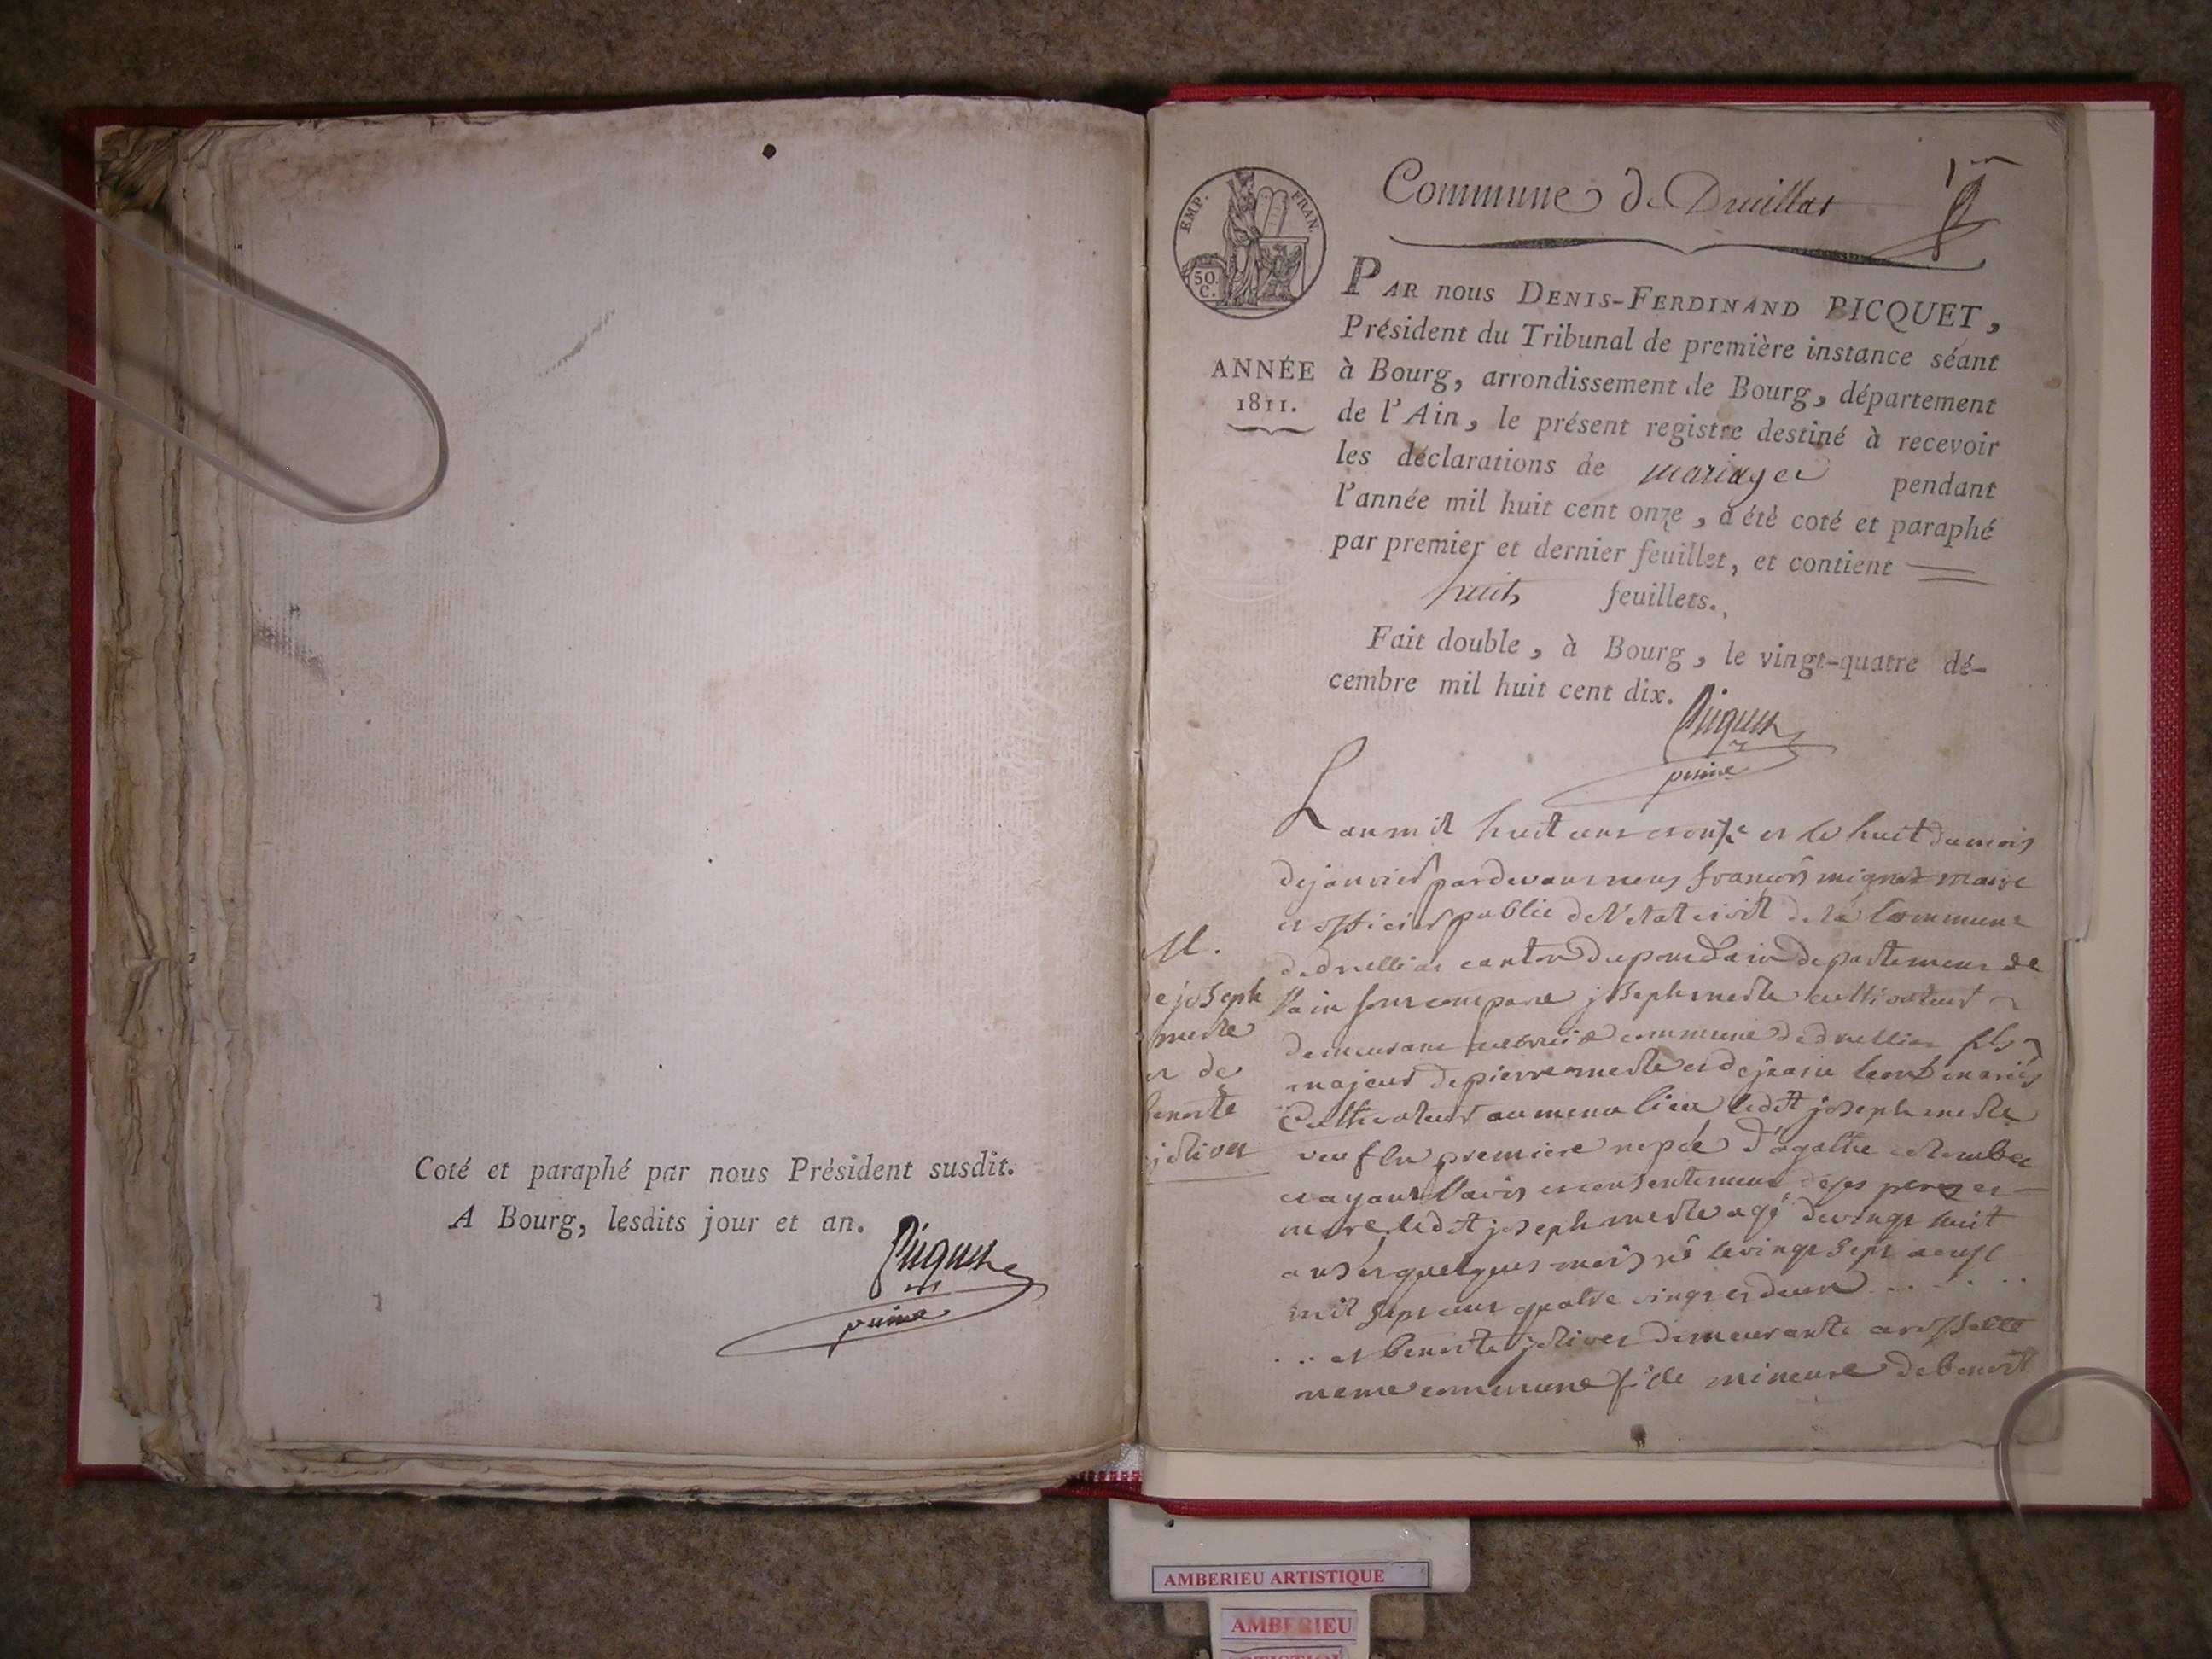 Coté et paraphé par nous Président susdit.
A Bourg, lesdits jour et an.
Picquet
Commune de Druillat
1er
EMP. FRAN.
50 C.
ANNÉE
1811.
PAR nous DENIS-FERDINAND PICQUET,
Président du Tribunal de première instance séant
à Bourg, arrondissement de Bourg, département
de l'Ain, le présent registre destiné à recevoir
les déclarations de mariages pendant
l'année mil huit cent onze, a été coté et paraphé
par premier et dernier feuillet, et contient
huit feuillets.
Fait double, à Bourg, le vingt-quatre dé-
cembre mil huit cent dix.
Picquet
M.
de joseph
merle
et de
benoite
jolivet
L an mil huit cent et onze et le huit du mois
de janvier pardevant nous françois mignot maire
et officier public de l'etat civil de la Commune
de druillat canton du pont dain departement de
l'ain sont comparu joseph merle cultivateur
demeurant commune de druillat fils
majeur de pierre merle et de jeanne mariés
Cultivateurs au meme lieu ledit joseph merle
veuf en premiere d'agathe
et ayant l'avis et consentement de ses pere et
mere ledit joseph merle agé de vingt huit
ans et quelques mois né le vingt sept aoust
mil sept cent quatre vingt et deux
et benoite jolivet demeurante a rossette
meme commune fille mineure de benoit
AMBERIEU ARTISTIQUE
AMBERIEU